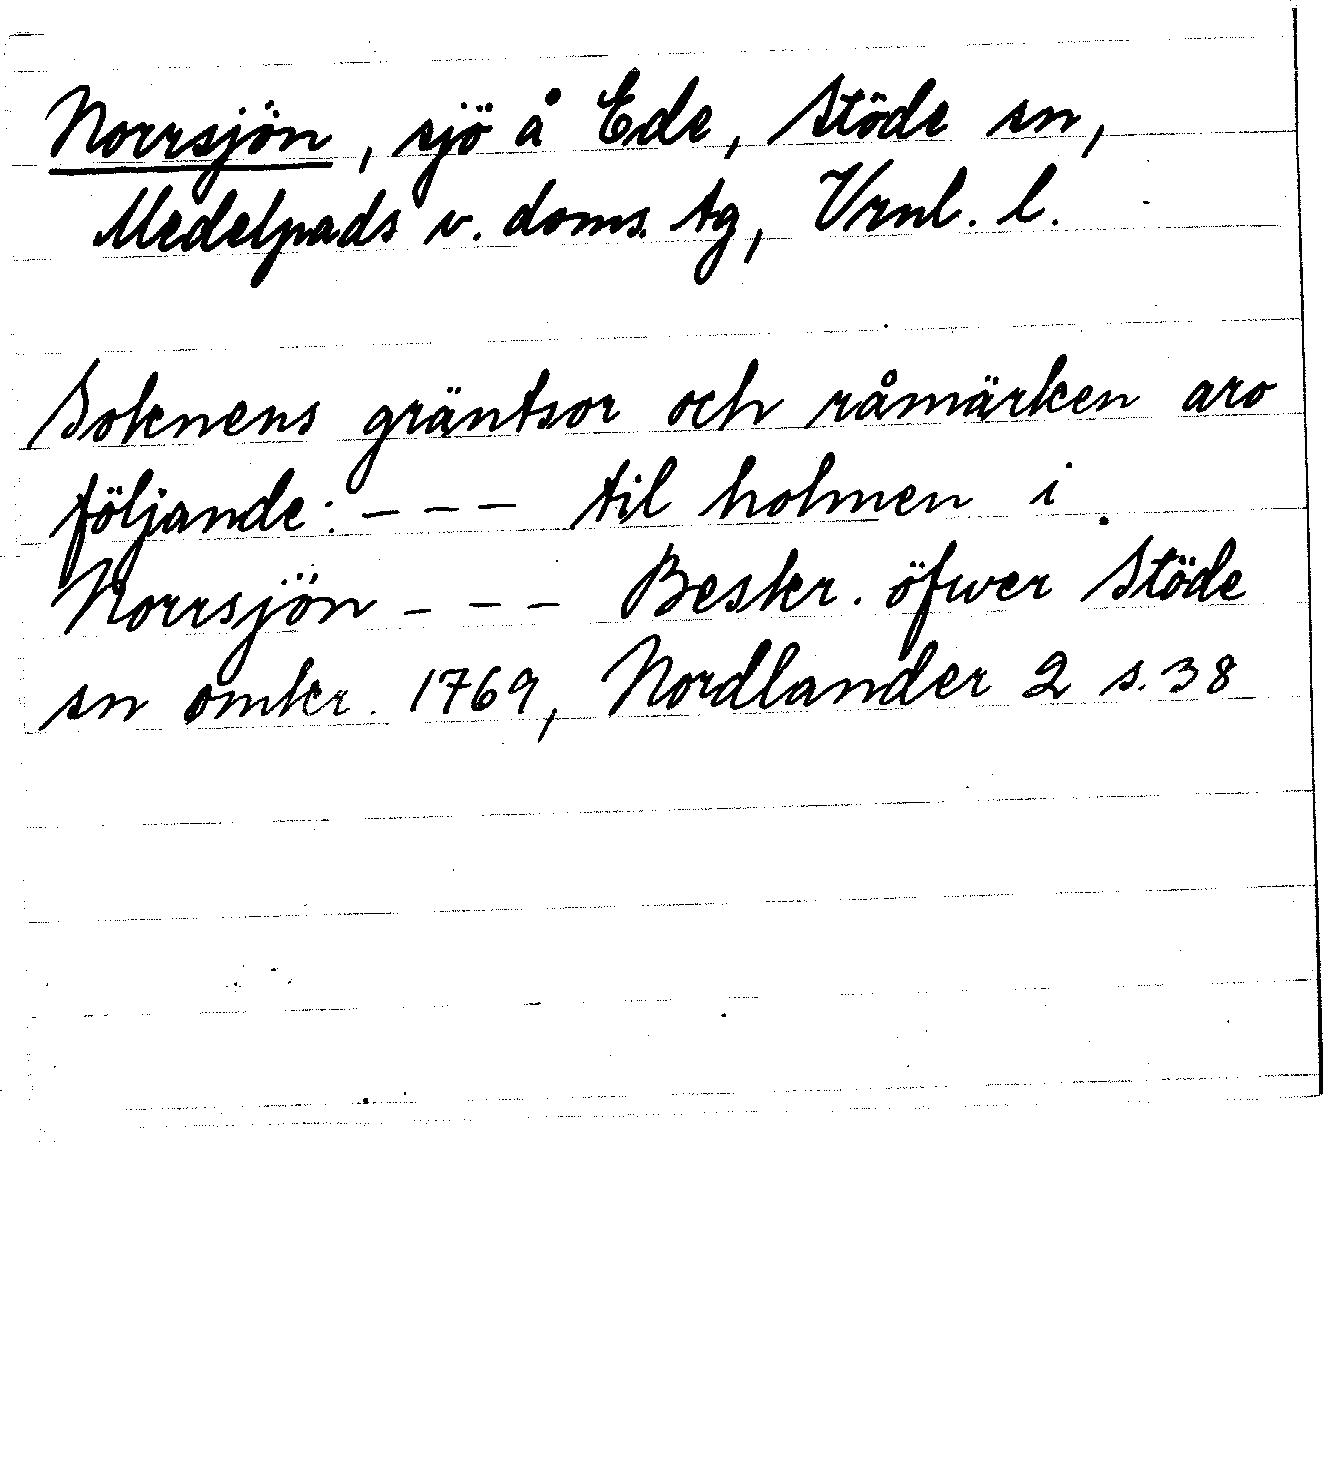 Norrsjön, sjö å Ede, Stöde sn,
Medelpads v. doms. tg, Vrnl. l.
Soknens gräntsor och råmärken aro
följande: - - - til holmen i
Norrsjön - - - Beskr. öfwer Stöde
sn omkr. 1769, Nordlander 2 s. 38